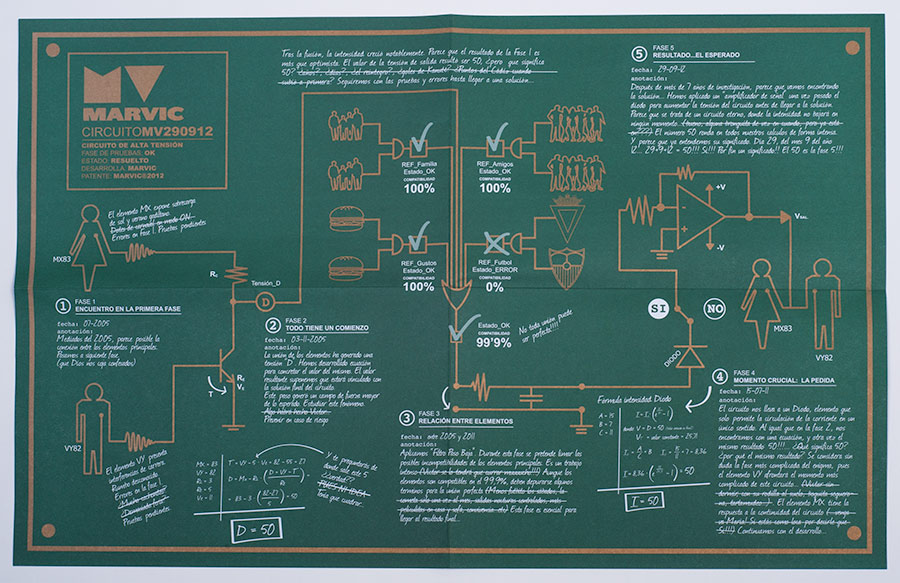 MARVIC
CIRCUITOMV290912
CIRCUITO DE ALTA TENSIÓN
FASE DE PRUEBAS: OK
ESTADO: RESUELTO
DESARROLLA: MARVIC
PATENTE: MARVIC®2012
Tras la fusión, la intensidad creció notablemente. Parece que el resultado de la Fase 1 es
más que optimista. El valor de la tensión de salida resulta ser 50, ¿pero que significa
50? ¿años?, ¿días?, ¿el reintegro?, ¿goles de Kanuté? ¿Puntos del Cádiz cuando
subió a primera? Seguiremos con las pruebas y errores hasta llegar a una solución...
5
FASE 5
RESULTADO...EL ESPERADO
fecha: 29-09-12
anotación:
Después de más de 7 años de investigación, parece que vamos encontrando
la solución... Hemos aplicado un "amplificador de señal" una vez pasado el
diodo para aumentar la tensión del circuito antes de llegar a la solución.
Parece que se trata de un circuito eterno, donde la intensidad no bajará en
ningún momento.
El número 50 ronda en todos nuestros cálculos de forma intensa.
Y parece que ya entendemos su significado. Día 29, del mes 9 del año
12... 29+9+12 = 50!!! SI!!! Por fin un significado!! El 50 es la fase 5!!!
REF_Familia
Estado_OK
COMPATIBILIDAD
100%
REF_Amigos
Estado_OK
COMPATIBILIDAD
100%
REF_Gustos
Estado_OK
COMPATIBILIDAD
100%
REF_Futbol
Estado_ERROR
COMPATIBILIDAD
0%
Estado_OK
COMPATIBILIDAD
99'9%
No toda unión puede
ser perfecta!!!!
+V
-V
VSAL
El elemento MX expone sobrecarga
de sol y verano gaditano
Errores en Fase 1. Pruebas pendientes
MX83
Rc
Tensión_D
D
1
FASE 1
ENCUENTRO EN LA PRIMERA FASE
fecha: 07-2005
anotación:
Mediados del 2005, parece posible la
conexión entre los elementos principales.
Pasamos a siguiente fase,
(que Dios nos coja confesados)
T
VY82
El elemento VY presenta
interferencias de carrera.
Rumbo desconocido
Errores en la fase 1
Pruebas pendientes
2
FASE 2
TODO TIENE UN COMIENZO
fecha: 03-11-2005
anotación:
La unión de los elementos ha generado una
tensión "D". Hemos desarrollado ecuación
para concretar el valor del mismo. El valor
resultante suponemos que estará vinculado con
la solución final del circuito.
Este paso generó un campo de fuerza mayor
de lo esperado. Estudiar este fenómeno
Prevenir en caso de riesgo
MX = 83
VY = 82
D = 50
Y te preguntarás
de donde sale este
3
FASE 3
RELACIÓN ENTRE ELEMENTOS
fecha: entre 2005 y 2011
anotación:
Aplicamos "Filtro Paso Bajo". Durante esta fase se pretende limar las
posibles incompatibilidades de los elementos principales. Es un trabajo
intenso
Aunque los
elementos son compatibles en el 99,9%, deben depurarse algunos
terminos para la unión perfecta
Esta fase es esencial para
llegar al resultado final...
SI
NO
DIODO
MX83
VY82
Fórmula intensidad Diodo
A = 15
B = 7
C = 11
I = 50
4
FASE 4
MOMENTO CRUCIAL: LA PEDIDA
fecha: 15-07-11
anotación:
El circuito nos lleva a un Diodo, elemento que
solo permite la circulación de la corriente en un
único sentido. Al igual que en la fase 2, nos
encontramos con una ecuación, y otra vez el
mismo resultado 50!!! ¿Qué significa 50?
¿por que el mismo resultado? Se considera sin
duda la fase más complicada del enigma, pues
el elemento VY afrontará el momento más
complicado de este circuito...
El elemento MX tiene la
respuesta a la continuidad del circuito
Continuamos con el desarrollo...